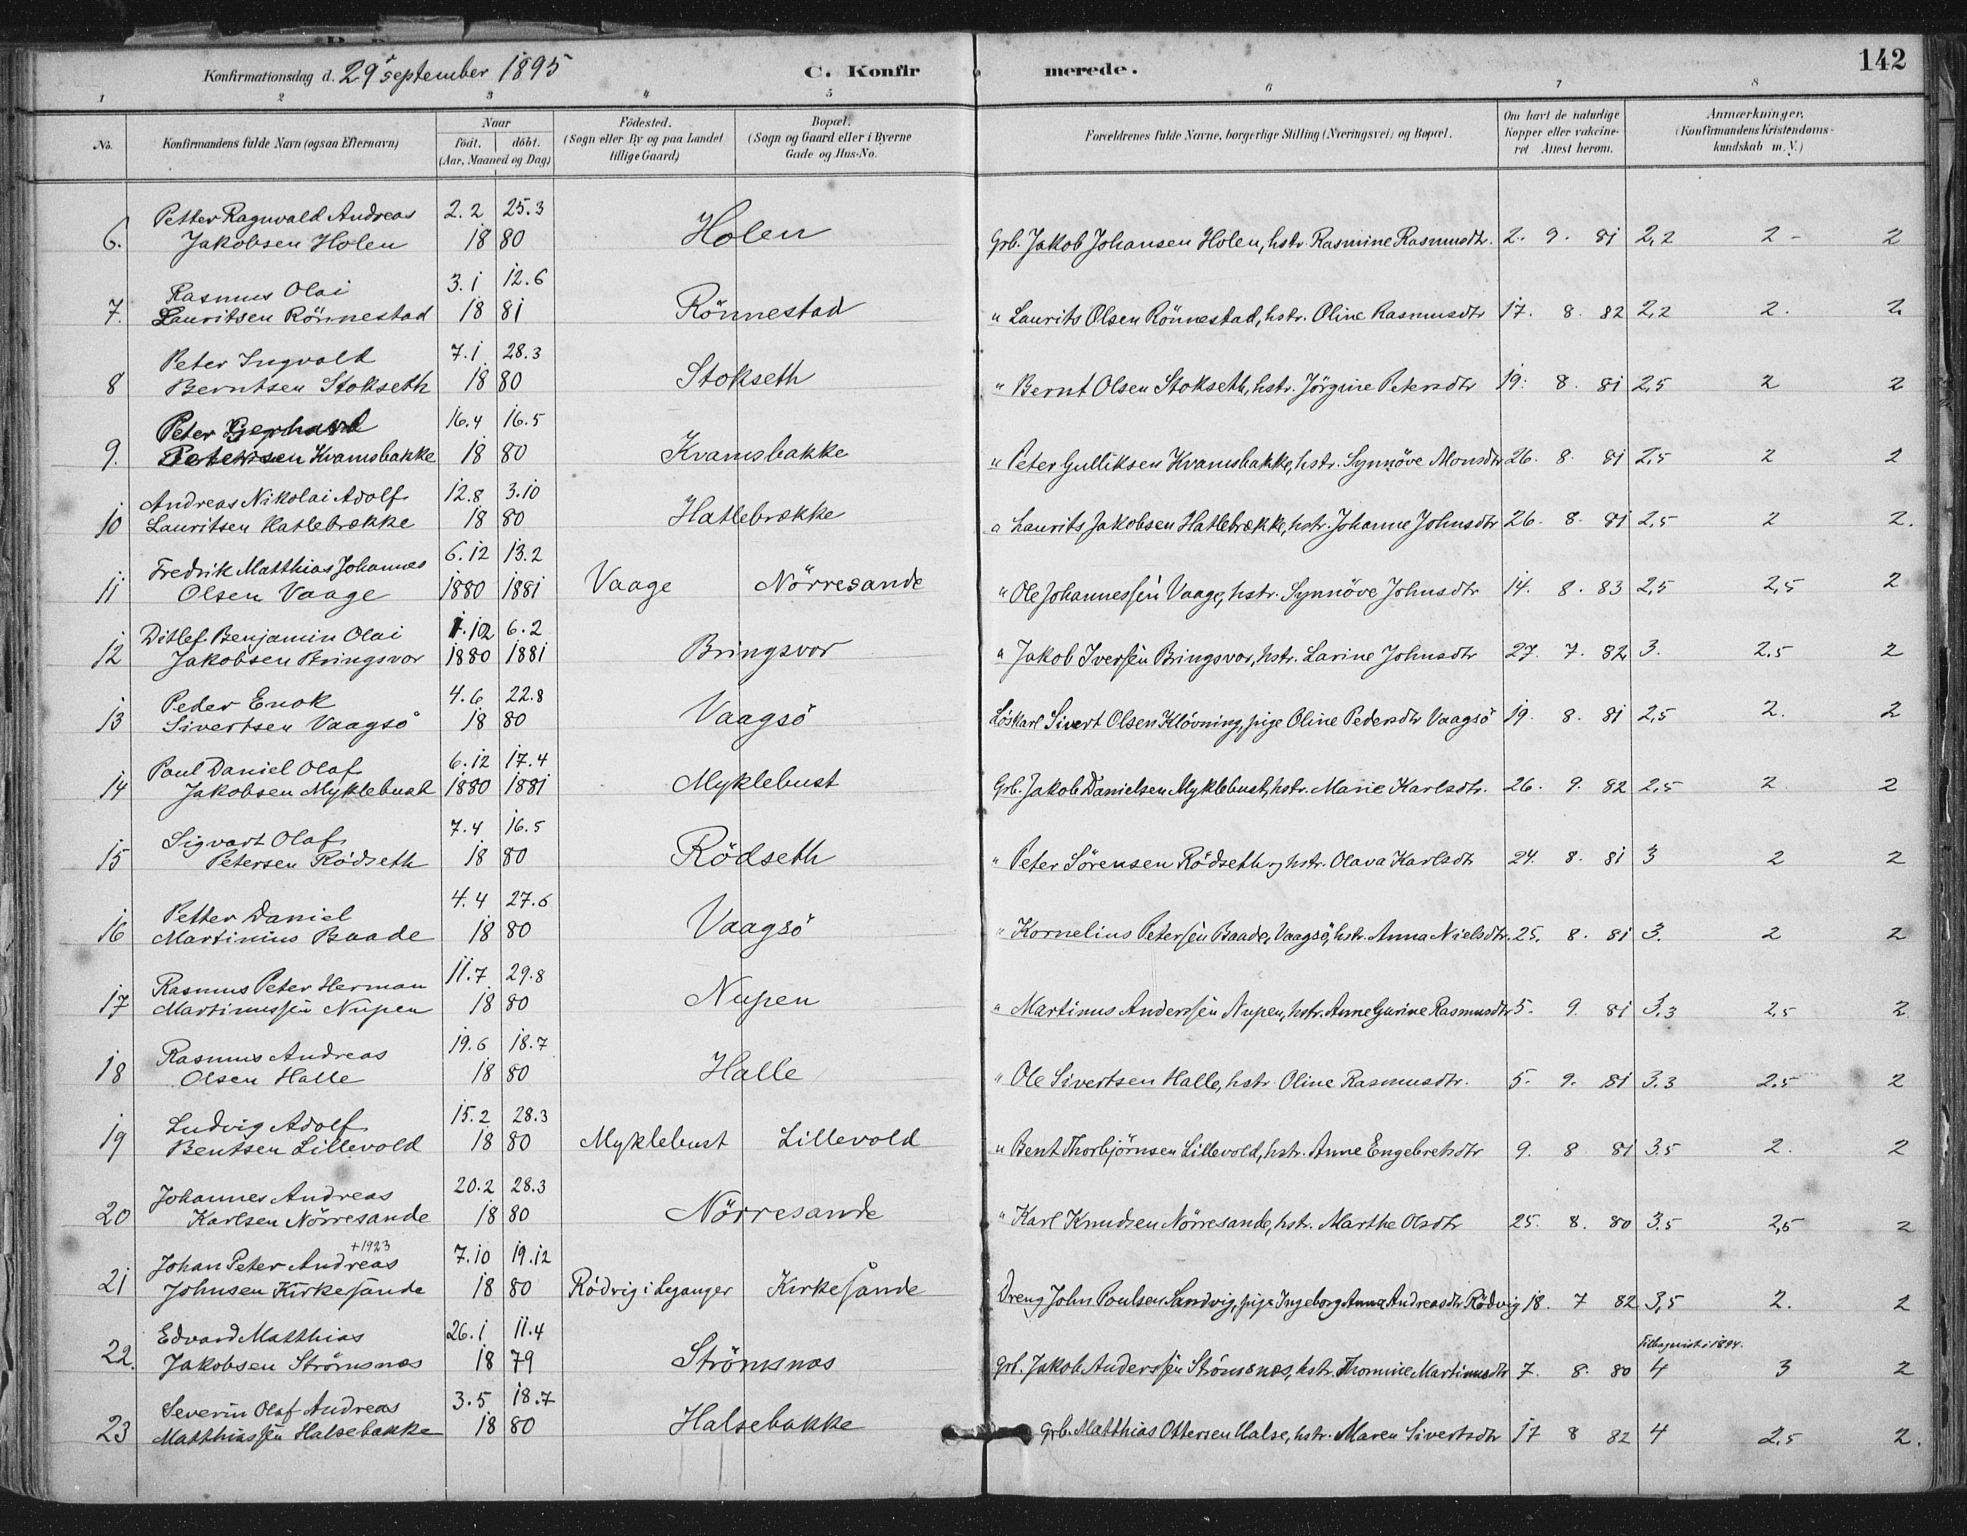 142
Konfirmationsdag d. 29 September 1895 C. Konfir merede.
1 2 3 4 5 6 7 8
No. Konfirmandens fulde Navn (ogsaa Efternavn) Naar födt. döbt. (Aar, Maaned og Dag) Födested. (Sogn eller By og paa Landet tillige Gaard) Bopæl. (Sogn og Gaard eller i Byerne Gade og Hus-No. Forældrenes fulde Navne, borgerlige Stilling (Næringsvei) og Bopæl. Om havt de naturlige Kopper eller vakcineret Attest herom. Anmærkninger. (Konfirmandens Kristendomskundskab m. V.)
Petter Ragnvald Andreas 2.2 25.3
6. Jakobsen Holen 18 80 Holen Grb. Jakob Johansen Holen, hstr. Rasmine Rasmusdtr. 2. 9. 81 2,2 2 - 2
Rasmus Olai 3.1 12.6
7. Lauritsen Rönnestad 18 81 Rönnestad " Laurits Olsen Rönnestad, hstr. Oline Rasmusdtr 17. 8. 82 2,2 2. 2.
Peter Ingvald 7.1 28.3
8 Berntsen Stokseth 18 80 Stokseth " Bernt Olsen Stokseth, hstr. Jörgine Petersdtr 19. 8. 81 2,5 2 2
Peter Gerhard 16.4 16.5
9. Petersen Kvamsbakke 18 80 Kvamsbakke " Peter Gulliksen Kvamsbakke, hstr. Synnöve Monsdtr 26. 8. 81 2,5 2 2
Andreas Nikolai Adolf 12.8 3.10
10 Lauritsen Hatlebrække 18 80 Hatlebrække " Laurits Jakobsen Hatlebrække, hstr. Johanne Johnsdtr 26. 8. 81 2,5 2 2.
Fredrik Matthias Johannes 6.12 13.2
11 Olsen Vaage 1880 1881 Vaage Nörresande " Ole Johannessen Vaage, hstr. Synnöve Johnsdtr 14. 8. 83 2,5 2,5 2
Ditlef Benjamin Olai 1.12 6.2
12 Jakobsen Bringsvor 1880 1881 Bringsvor " Jakob Iversen Bringsvor, hstr. Larine Johnsdtr 27. 7. 82 3. 2.5 2
Peder Enok 4.6 22.8
13 Sivertsen Vaagsö 18 80 Vaagsö Löskarl Sivert Olsen Klövning, pige Oline Pedersdtr Vaagsö 19. 8. 81 2,5 2. 2
Paul Daniel Olaf 6.12 17.4
14 Jakobsen Myklebust 1880 1881 Myklebust Grb. Jakob Danielsen Myklebust, hstr. Marie Karlsdtr. 26. 9. 82 2,5 2 2
Sigvart Olaf 7.4 16.5
15 Petersen Rödseth 18 80 Rödseth " Peter Sörensen Rödseth og hstr. Olava Karlsdtr 24. 8. 81 3 2 2
Petter Daniel 4.4 27.6
16 Martinius Baade 18 80 Vaagsö " Kornelius Petersen Baade, Vaagsö, hstr. Anna Nielsdtr. 25. 8. 81 3. 2 2
Rasmus Peter Herman 11.7 29.8
17 Martinussen Nupen 18 80 Nupen " Martinus Anderssen Nupen, hstr. Anne Gurine Rasmusdtr 5. 9. 81 3.3 2,5 2
Rasmus Andreas 19.6 18.7
18 Olsen Halle 18 80 Halle " Ole Sivertsen Halle, hstr. Oline Rasmusdtr. 5. 9. 81 3.3 2.5 2
Ludvig Adolf 15.2 28.3
19 Bentsen Lillevold 18 80 Myklebust Lillevold " Bent Thorbjörnsen Lillevold, hstr. Anne Engebretsdtr 9. 8 81 3.5 2. 2
Johannes Andreas 20.2 28.3
20 Karlsen Nörresande 18 80 Nörresande " Karl Knudsen Nörresande, hstr. Marthe Olsdtr 25. 8. 80 3.5 2,5 2
+1923
Johan Peter Andreas 7.10 19.12
21 Johnsen Kirkesande 18 80 Rödvig i Leganger Kirkesande Dreng John Poulsen Sandvig, pige Ingeborg Anna Andreasdtr Rödvig 18. 7 82 3,5 2. 2
Edvard Matthias 26.1 11.4
22. Jakobsen Strömsnæs 18 79 Strömsnæs Grb. Jakob Anderssen Strömsnæs, hstr. Thomine Martinusdtr 7. 8. 80 4 3 2
Severin Olaf Andreas 3.5 18.7
23 Matthiassen Halsebakke 18 80 Halsebakke Grb. Matthias Ottersen Halse, hstr. Maren Sivertsdtr 17 8 82 4 2,5 2.